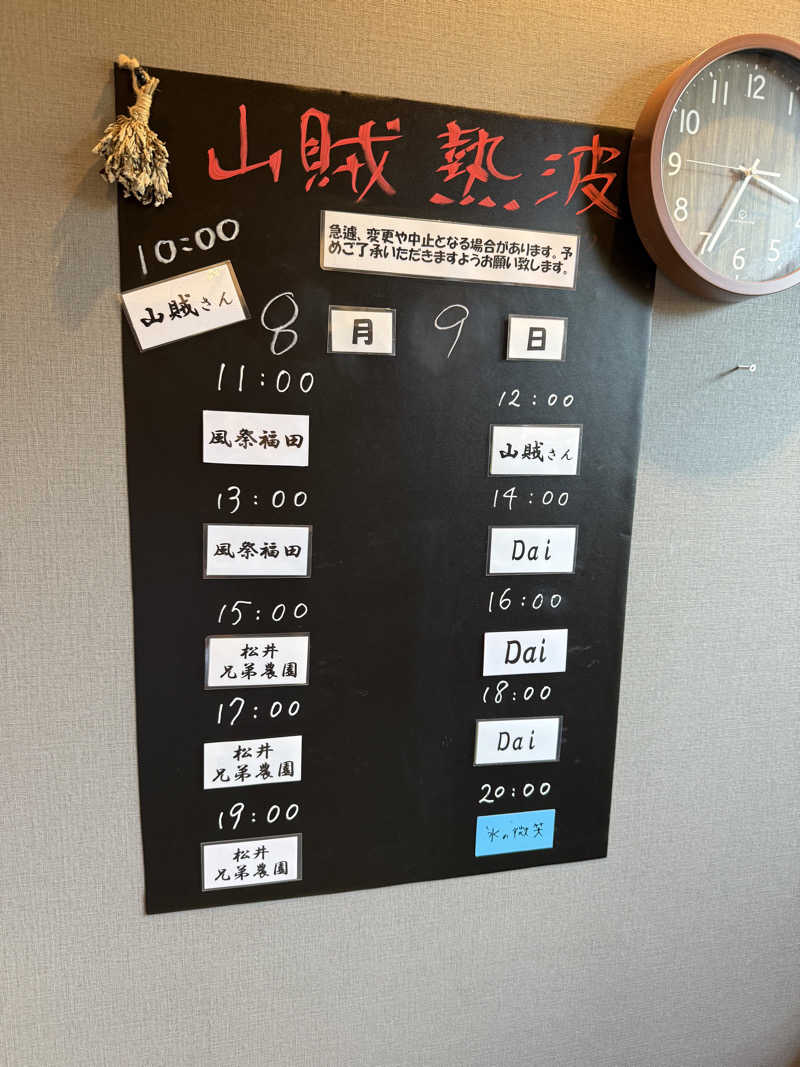 山賊 熱波
急遽、変更や中止となる場合があります。予
めご了承いただきますようお願い致します。
10:00
山賊さん
8 月 9 日
11:00
風祭福田
12:00
山賊さん
13:00
風祭福田
14:00
Dai
15:00
松井
兄弟農園
16:00
Dai
17:00
松井
兄弟農園
18:00
Dai
19:00
松井
兄弟農園
20:00
氷の微笑
11 12
10
9
8
7 6 5